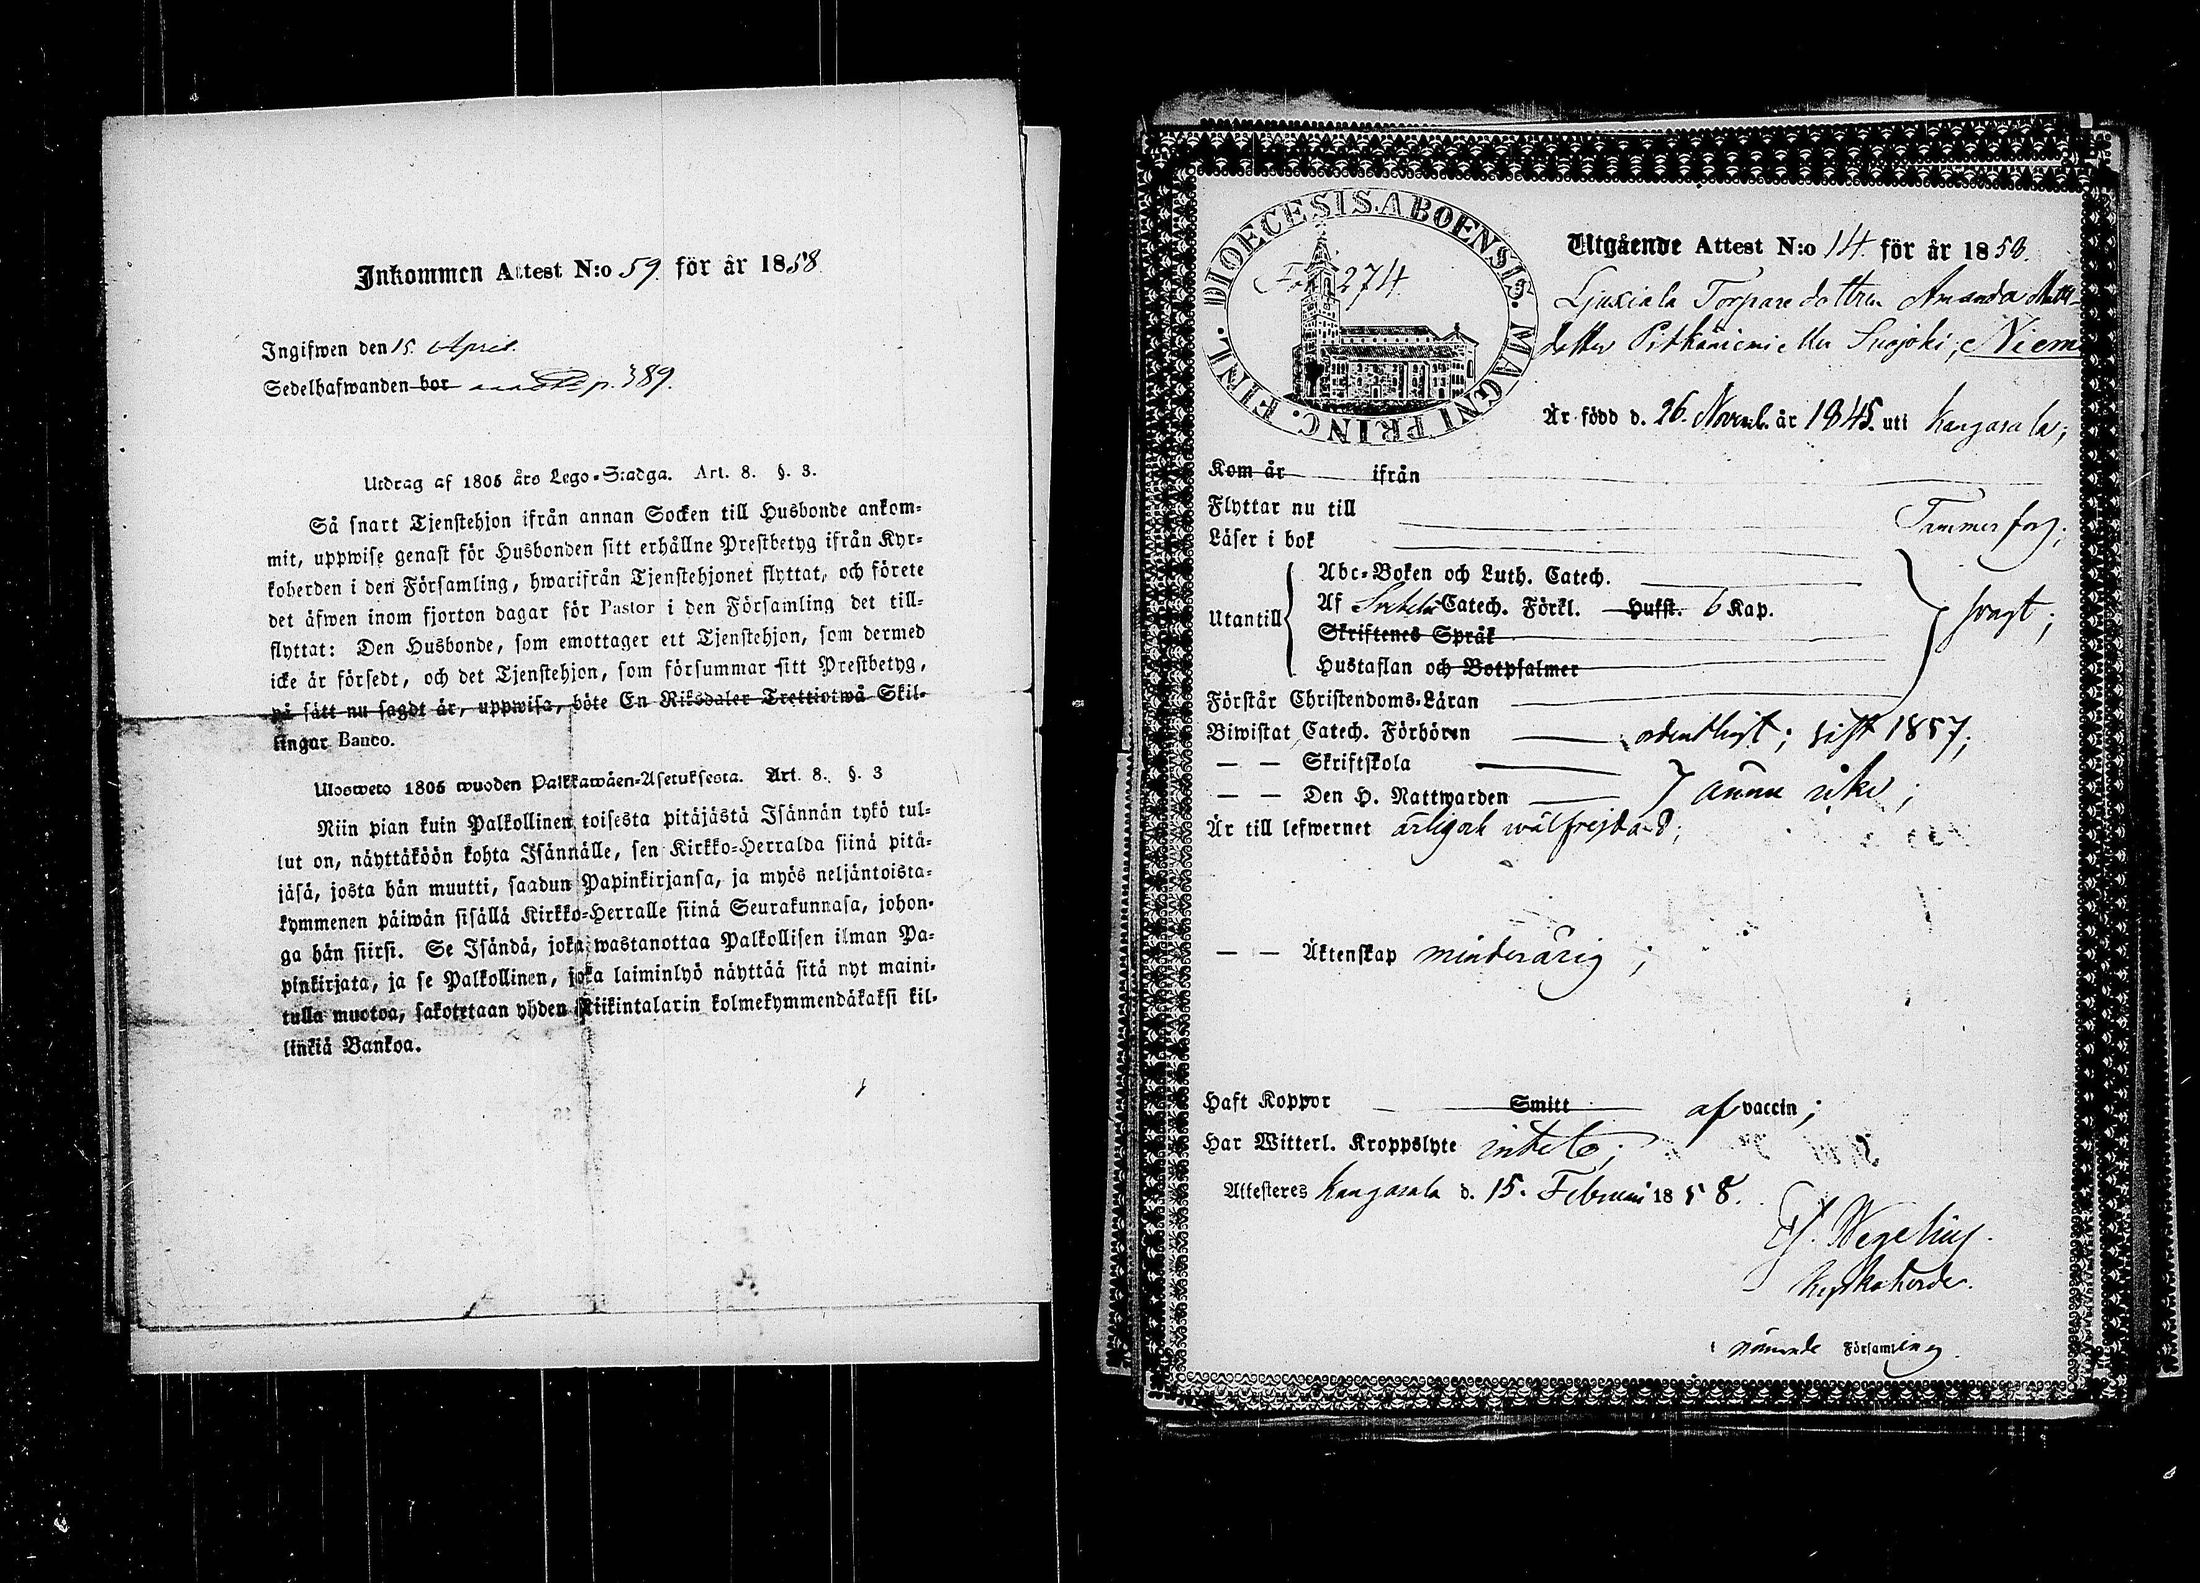 Inkommen Attest N:o 59 för år 1858
Ingifwen den 15. April.
Sedelhafwanden bor p. 389.
Utdrag af 1805 års Lego-Stadga. Art. 8. §. 3.
Så snart Tjenstehjon ifrån annan Socken till Husbonde ankom-
mit, uppwise genast för Husbonden sitt erhållne Prestbetyg ifrån Kyr-
koherden i den Församling, hwarifrån Tjenstehjonet flyttat, och förete
det äfwen inom fjorton dagar för Pastor i den Församling det till-
flyttat: Den Husbonde, som emottager ett Tjenstehjon, som dermed
icke är försedt, och det Tjenstehjon, som försummar sitt Prestbetyg,
på sätt nu sagdt är, uppwisa, böte En Riksdaler Trettiotwå Skil-
lingar Banco.
Ulosweto 1805 wuoden Palkkawäen-Asetuksesta. Art. 8. §. 3
Niin pian kuin Palkollinen toisesta pitäjästä Isännän tykö tul-
lut on, näyttäköön kohta Isännälle, sen Kirkko-Herralda siinä pitä-
jäsä, josta hän muutti, saadun Papinkirjansa, ja myös neljäntoista-
kymmenen päiwän sisällä Kirkko-Herralle siinä Seurakunnasa, johon-
ga hän siirsi. Se Isändä, joka wastanottaa Palkollisen ilman Pa-
pinkirjata, ja se Palkollinen, joka laiminlyö näyttää sitä nyt maini-
tulla muotoa, sakotetaan yhden Riikintalarin kolmekymmendäkaksi kil-
linkiä Bankoa.
DIOECESIS. ABOENSIS. MAGNI PRINC. FINL.
274.
Utgående Attest N:o 14 för år 1858.
Ljuxiala Torparedottren Amanda Matts-
dotter Pitkäniemi eller Suojoki, Niem
Är född d. 26. Novemb. år 1845. uti Kangasala;
Kom år ifrån
Flyttar nu till Tammerfors;
Läser i bok
Utantill
Abc-Boken och Luth. Catech.
Af Catech. Förkl. Hufst. 6 Kap.
Skriftenes Språk
Hustaflan och Botpsalmer
svagt;
Förstår Christendoms-Läran
Biwistat Catech. Förhören ordentligt; sist 1857;
— — Skriftskola
— — Den H. Nattwarden ännu icke;
Är till lefwernet ärlig och wälfrejdad;
— — Äktenskap minderårig;
Haft Koppor Smitt af vaccin;
Har Witterl. Kroppslyte intet;
Attesteres Kangasala d. 15. Februari 1858.
Wegelius.
Kyrkoherde.
i nämnde Församling.